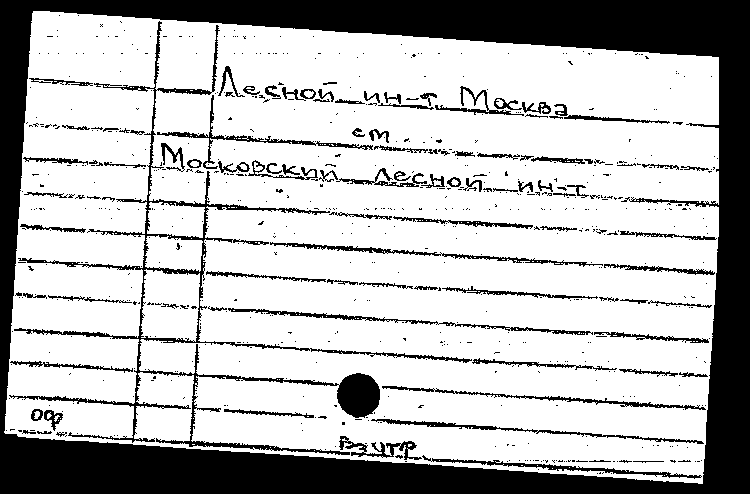 Лесной ин-т. Москва
см.
Московский лесной ин-т